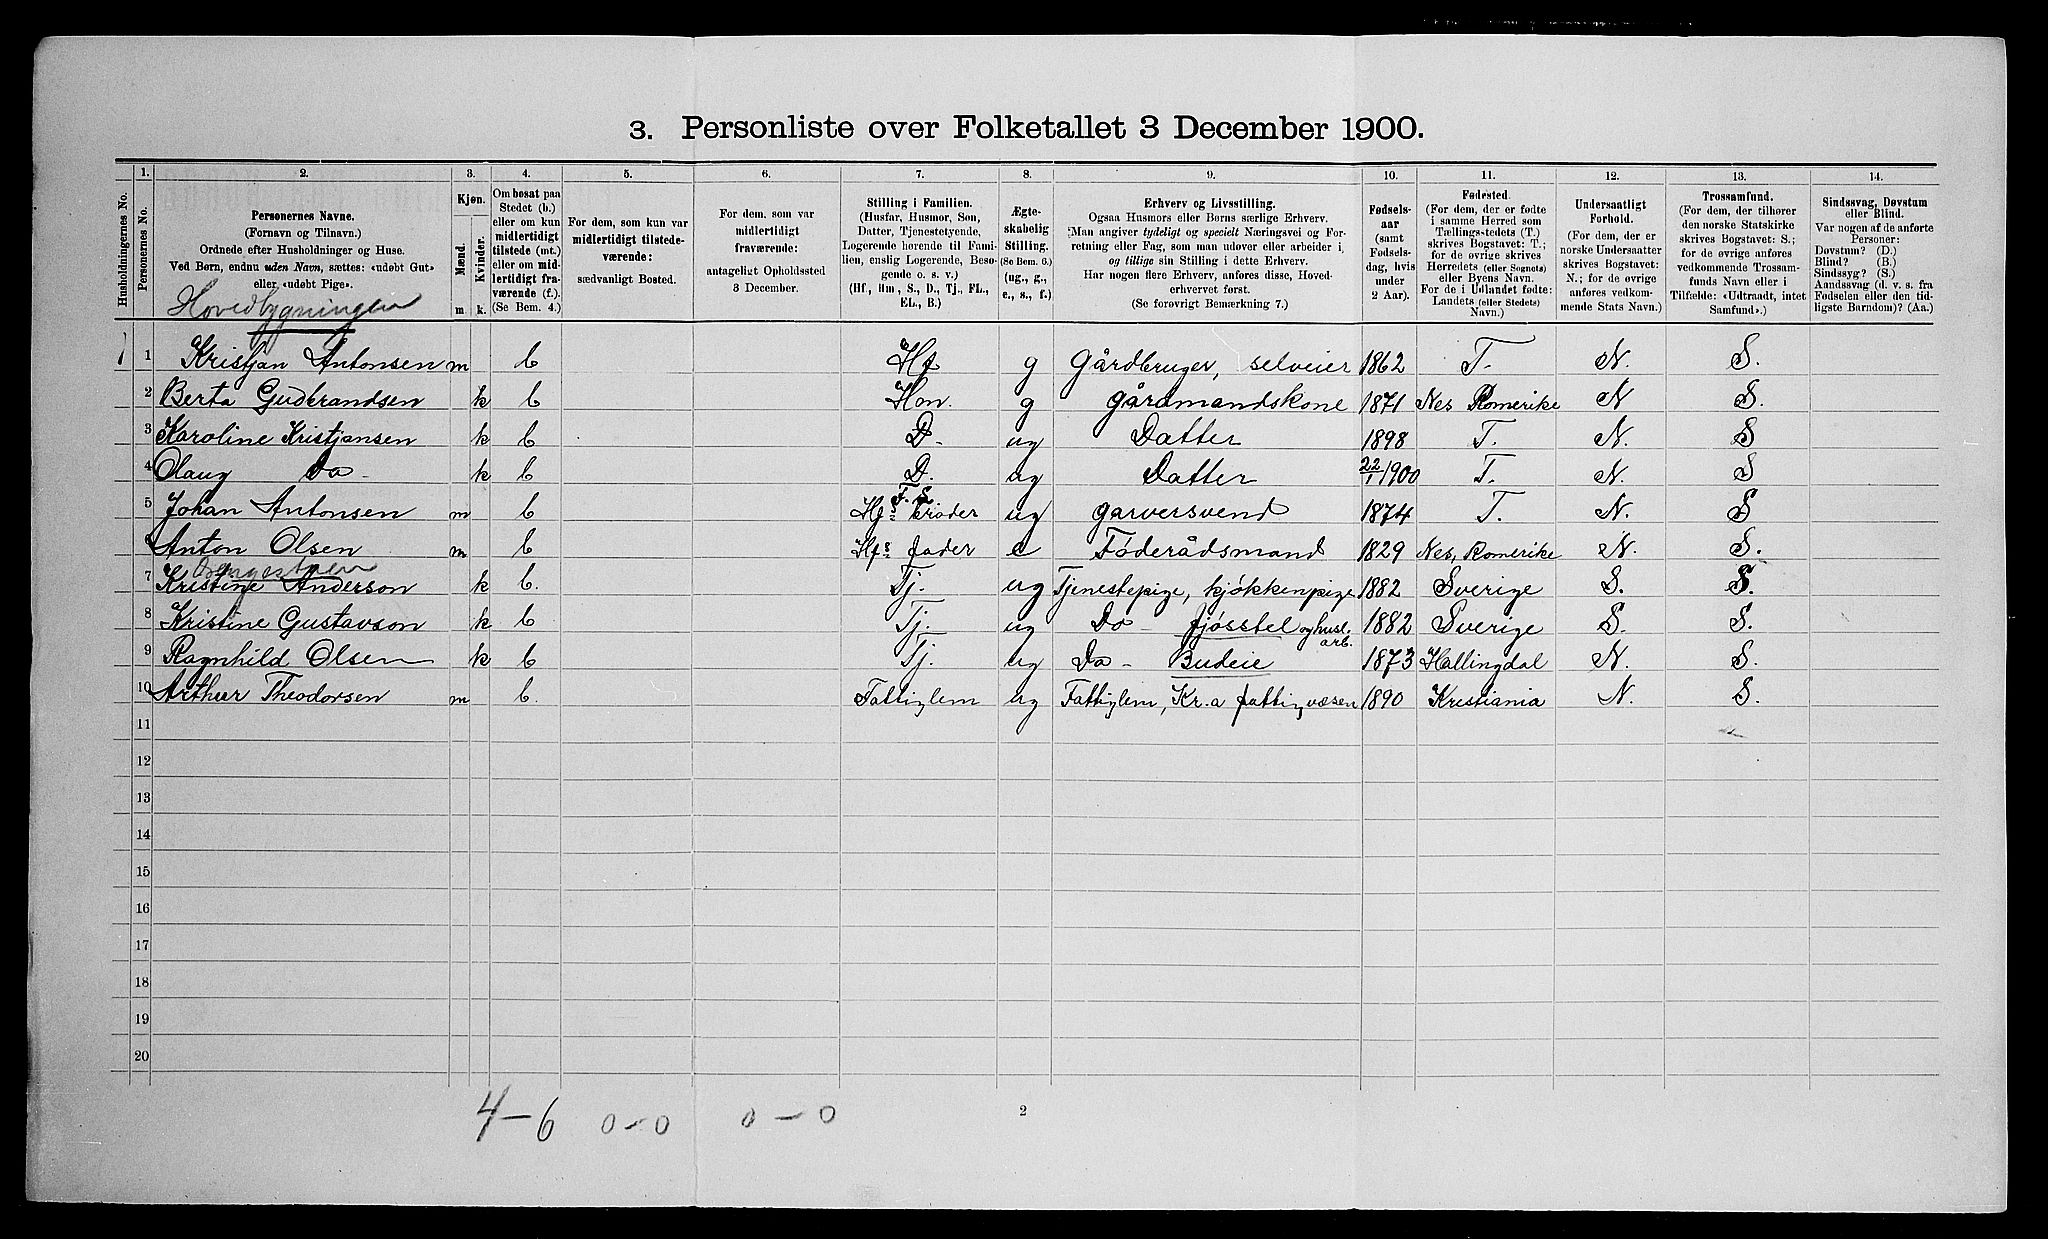 3. Personliste over Folketallet 3 December 1900.
Husholdningernes No.
1. Personernes No.
2. Personernes Navne.
(Fornavn og Tilnavn.)
Ordnede efter Husholdninger og Huse.
Ved Børn, endnu uden Navn, sættes: «udøbt Gut»
eller «udøbt Pige».
Hovedbygningen
3. Kjøn.
Mænd. Kvinder.
m k.
4. Om bosat paa
Stedet (b.)
eller om kun
midlertidigt
tilstede (mt.)
eller om mid-
lertidigt fra-
værende (f.).
(Se Bem. 4.)
5. For dem, som kun var
midlertidigt tilstede-
værende:
sædvanligt Bosted.
6. For dem, som var
midlertidigt
fraværende:
antageligt Opholdssted
3 December.
7. Stilling i Familien.
(Husfar, Husmor, Søn,
Datter, Tjenestetyende,
Logerende hørende til Fami-
lien, enslig Logerende, Besø-
gende o. s. v.)
(Hf, Hm, S., D., Tj., FL.,
EL., B.)
8. Ægte-
skabelig
Stilling.
(Se Bem. 6.)
(ug., g.,
e., s., f.)
9. Erhverv og Livsstilling.
Ogsaa Husmors eller Børns særlige Erhverv.
Man angiver tydeligt og specielt Næringsvei og For-
retning eller Fag, som man udøver eller arbeider i,
og tillige sin Stilling i dette Erhverv.
Har nogen flere Erhverv, anføres disse, Hoved-
erhvervet først.
(Se forøvrigt Bemærkning 7.)
10. Fødsels-
aar
(samt
Fødsels-
dag, hvis
under
2 Aar).
11. Fødested.
(For dem, der er fødte
i samme Herred som
Tællings-stedets (T.)
skrives Bogstavet: T.;
for de øvrige skrives
Herredets (eller Sognets)
eller Byens Navn.
For de i Udlandet fødte:
Landets (eller Stedets)
Navn.)
12. Undersaatligt
Forhold.
(For dem, der er
norske Undersaatter
skrives Bogstavet:
N.; for de øvrige
anføres vedkom-
mende Stats Navn.)
13. Trossamfund.
(For dem, der tilhører
den norske Statskirke
skrives Bogstavet: S.;
for de øvrige anføres
vedkommende Trossam-
funds Navn eller i
Tilfælde: «Udtraadt, intet
Samfund».)
14. Sindssvag, Døvstum
eller Blind.
Var nogen af de anførte
Personer:
Døvstum? (D.)
Blind? (B.)
Sindssyg? (S.)
Aandssvag (d. v. s. fra
Fødselen eller den tid-
ligste Barndom)? (Aa.)
1 1 Kristjan Antonsen m b Hf g Gårdbruger, selveier 1862 T. N. S.
2 Berta Gudbrandsen k b Hon. g gårdmandskone 1871 Nes Romerike N S.
3 Karoline Kristjansen k b D. ug Datter 1898 T. N. S
4 Olaug Do k b D. ug Datter 22/1 1900 T. N. S
5 Johan Antonsen m b F. S. Hfs broder ug garversvend 1874 T. N. S
6 Anton Olsen m b Hfs fader e Føderådsmand 1829 Nes, Romerike N. S.
7 Kristine Anderson k b. Tj. ug Tjenestepige, kjøkkenpige 1882 Sverige S. S.
8 Kristine Gustavson k b Tj. ug Do fjøsstel og husl. arb. 1882 Sverige S. S.
9 Ragnhild Olsen k b Tj. ug Do - Budeie 1873 Hallingdal N. S.
10 Arthur Theodorsen m b. Fattiglem ug Fattiglem, Kr.a fattigvæsen 1890 Kristiania N. S.
11
12
13
14
15
16
17
18
19
20
4-6 0-0 0-0
2